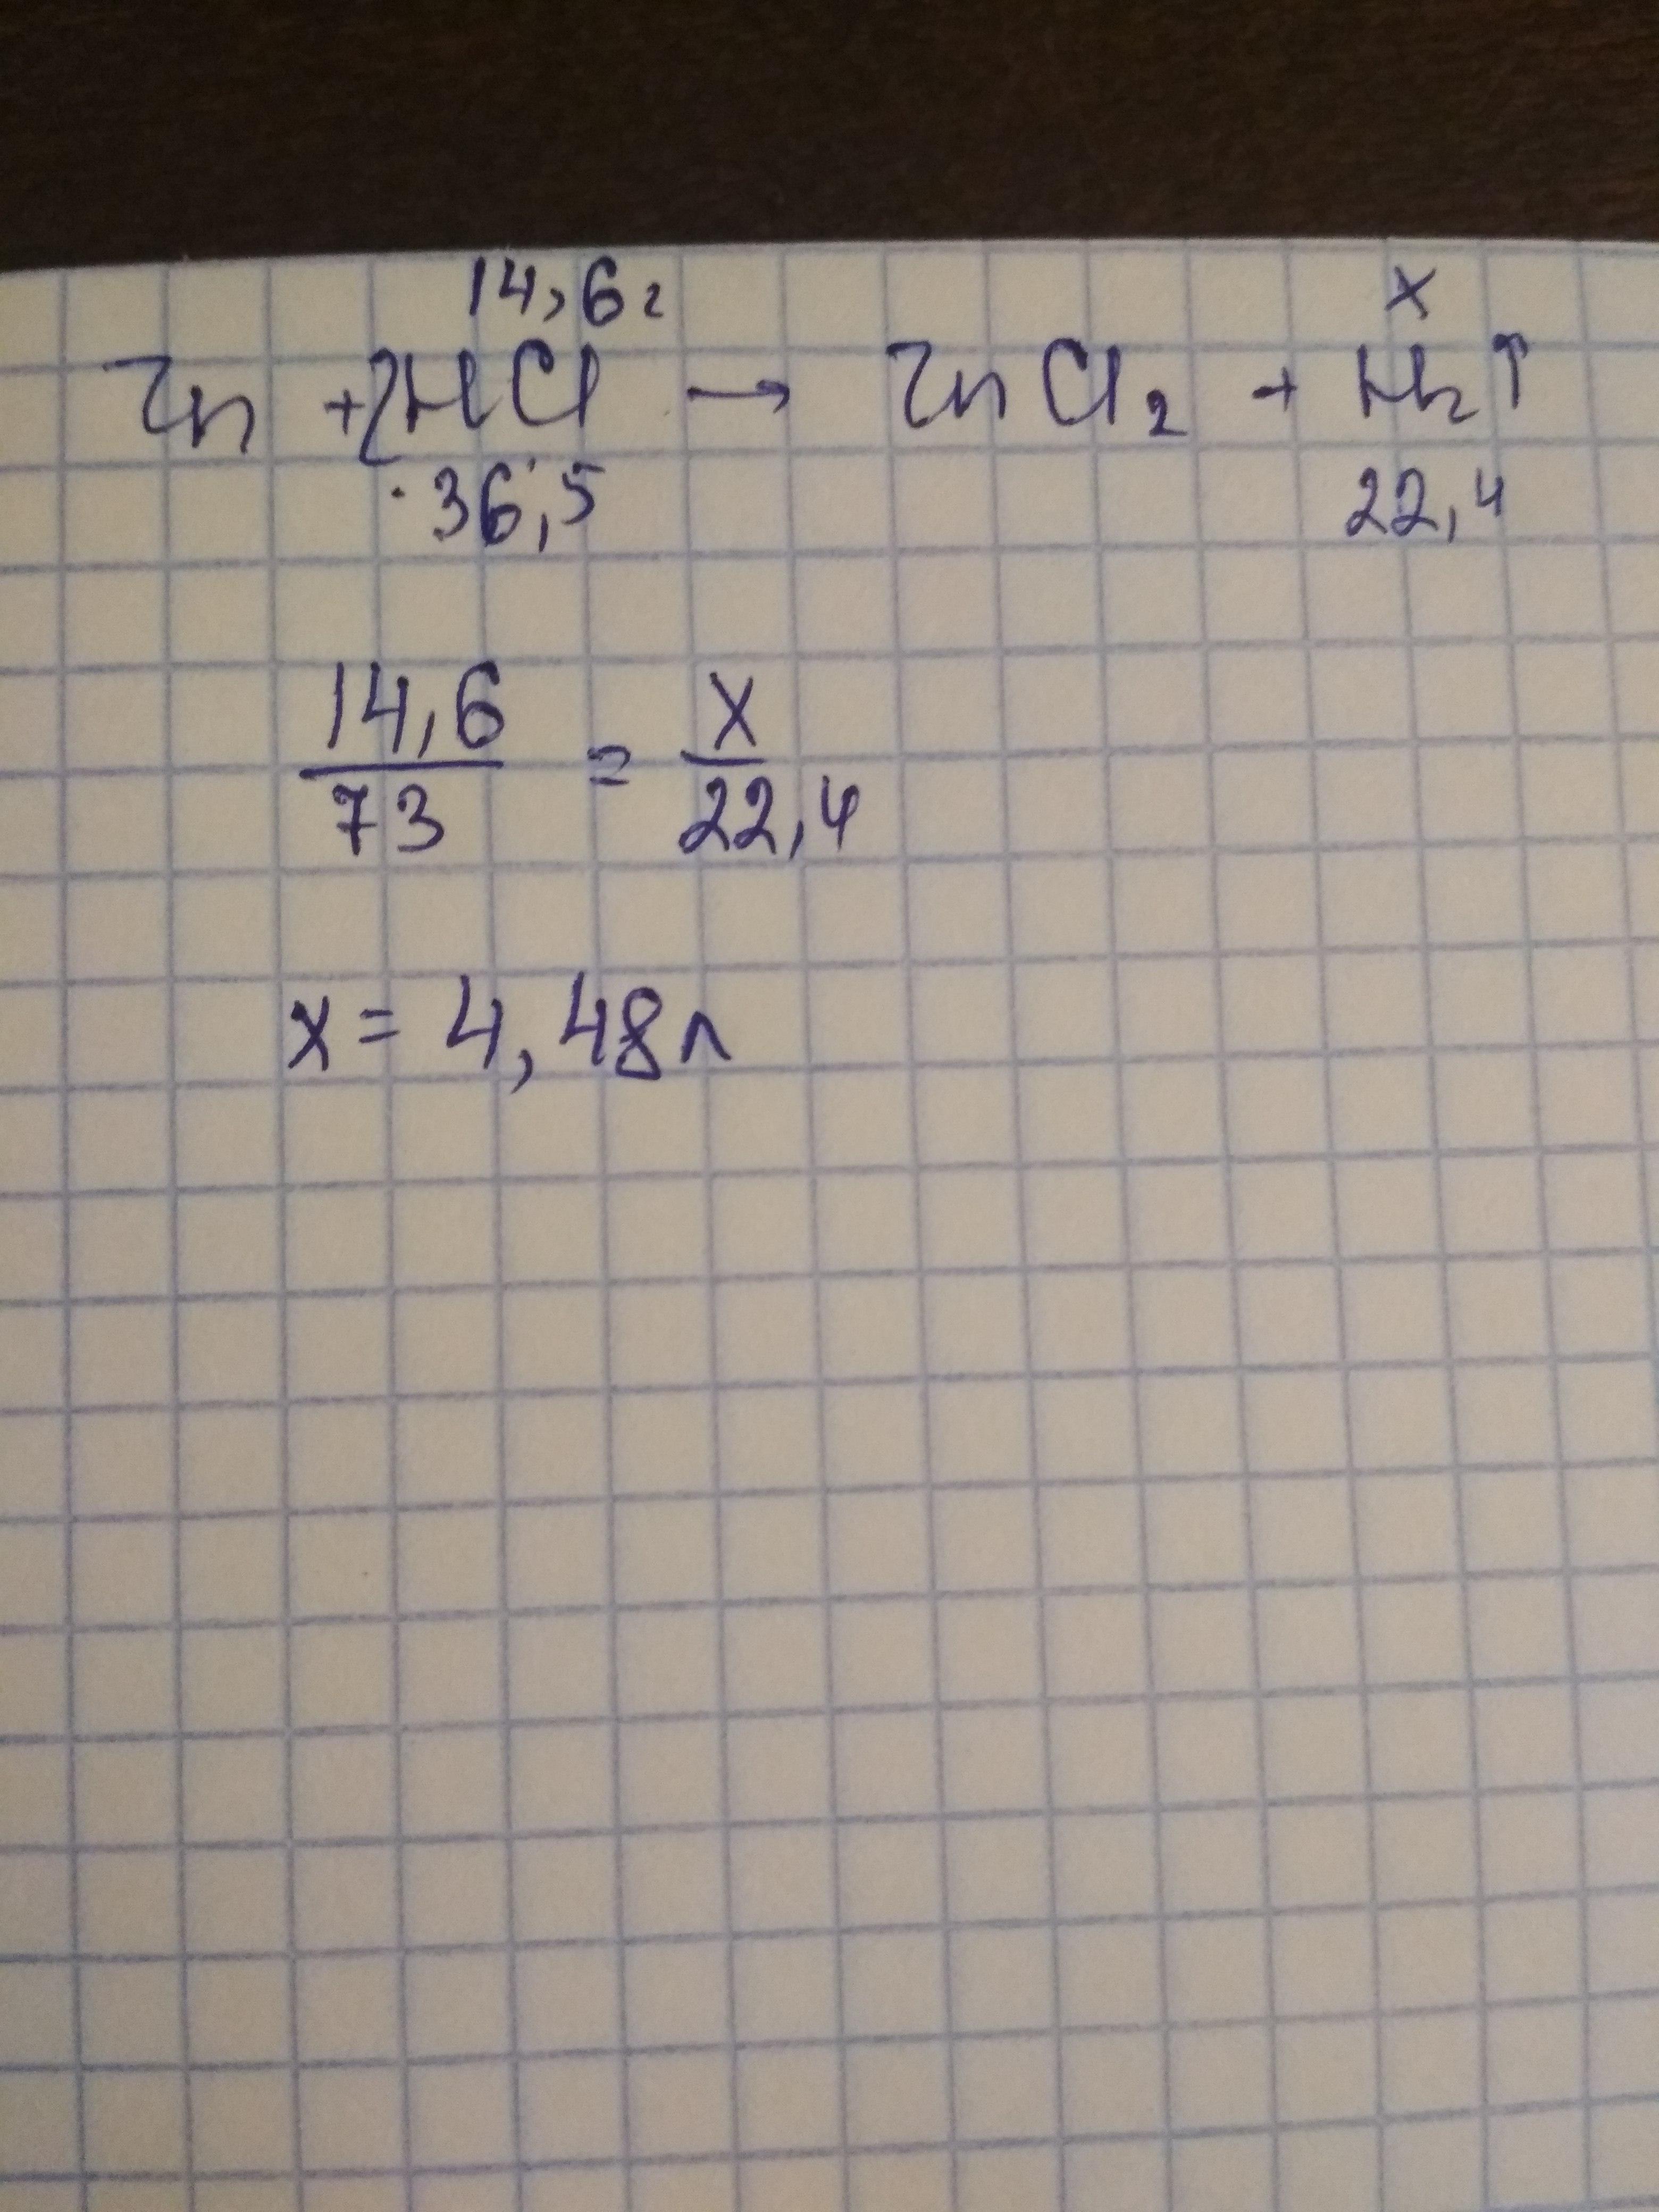 14,6г x
Zn + 2HCl → ZnCl₂ + H₂↑
36,5 22,4
14,6 x
73 = 22,4
x = 4,48л